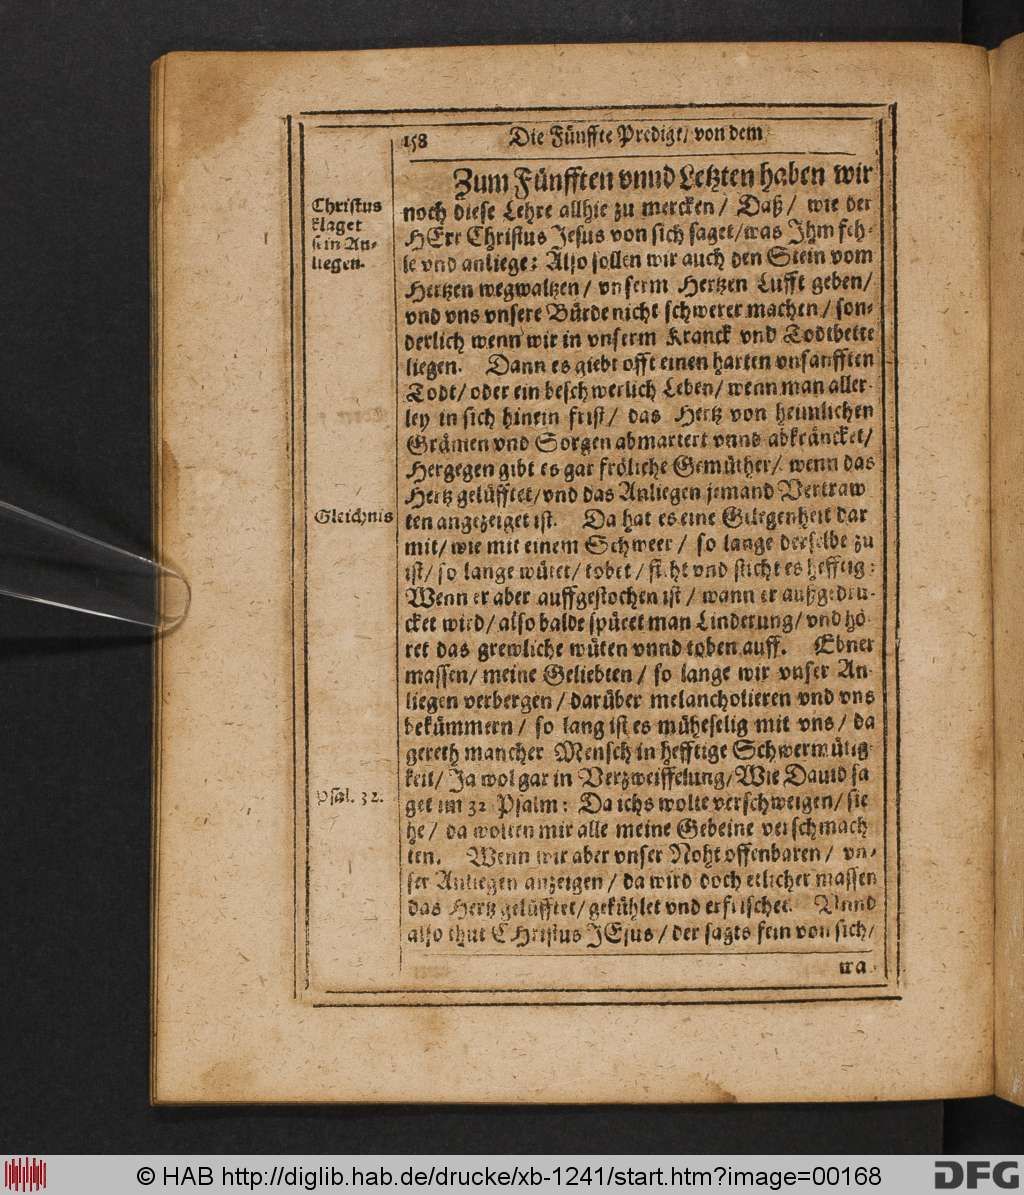 158 Die Fünffte Predigt/ von dem
Zum Fünfften vnnd Letzten haben wir
Christus
klaget
sein An-
liegen.
noch diese Lehre allhie zu mercken/ Daß/ wie der
HErr Christus Jesus von sich saget/ was Ihm feh-
le vnd anliege: Also sollen wir auch den Stein vom
Hertzen wegwaltzen/ vnserm Hertzen Lufft geben/
vnd vns vnsere Bürde nicht schwerer machen/ son-
derlich wenn wir in vnserm Kranck vnd Todtbette
liegen. Dann es giebt offt einen harten vnsanfften
Todt/ oder ein beschwerlich Leben/ wenn man aller-
ley in sich hinein frist/ das Hertz von heimlichen
Grämen vnd Sorgen abmartert vnns abkräncket/
Hergegen gibt es gar fröliche Gemüther/ wenn das
Hertz gelüfftet/ vnd das Anliegen jemand Vertraw
Gleichnis
ten angezeiget ist. Da hat es eine Gelegenheit dar
mit/ wie mit einem Schweer/ so lange derselbe zu
ist/ so lange wütet/ tobet/ sticht vnd sticht es hefftig:
Wenn er aber auffgestochen ist/ wann er außgedru-
cket wird/ also balde spüret man Linderung/ vnd hö-
ret das grewliche wüten vnnd toben auff. Ebner
massen/ meine Geliebten/ so lange wir vnser An-
liegen verbergen/ darüber melancholieren vnd vns
bekümmern/ so lang ist es müheselig mit vns/ da
gereth mancher Mensch in hefftige Schwermütig
keit/ Ja wol gar in Verzweiffelung/ Wie Dauid sa
Psal. 32.
get im 32 Psalm: Da ichs wolte verschweigen/ sie
he/ da wolten mir alle meine Gebeine verschmach
ten. Wenn wir aber vnser Noht offenbaren/ vn-
ser Anliegen anzeigen/ da wird doch etlicher massen
das Hertz gelüfftet/ gekühlet vnd erfrischet. Vnnd
also thut CHristus JEsus/ der sagts fein von sich/
wa-
© HAB http://diglib.hab.de/drucke/xb-1241/start.htm?image=00168
DFG